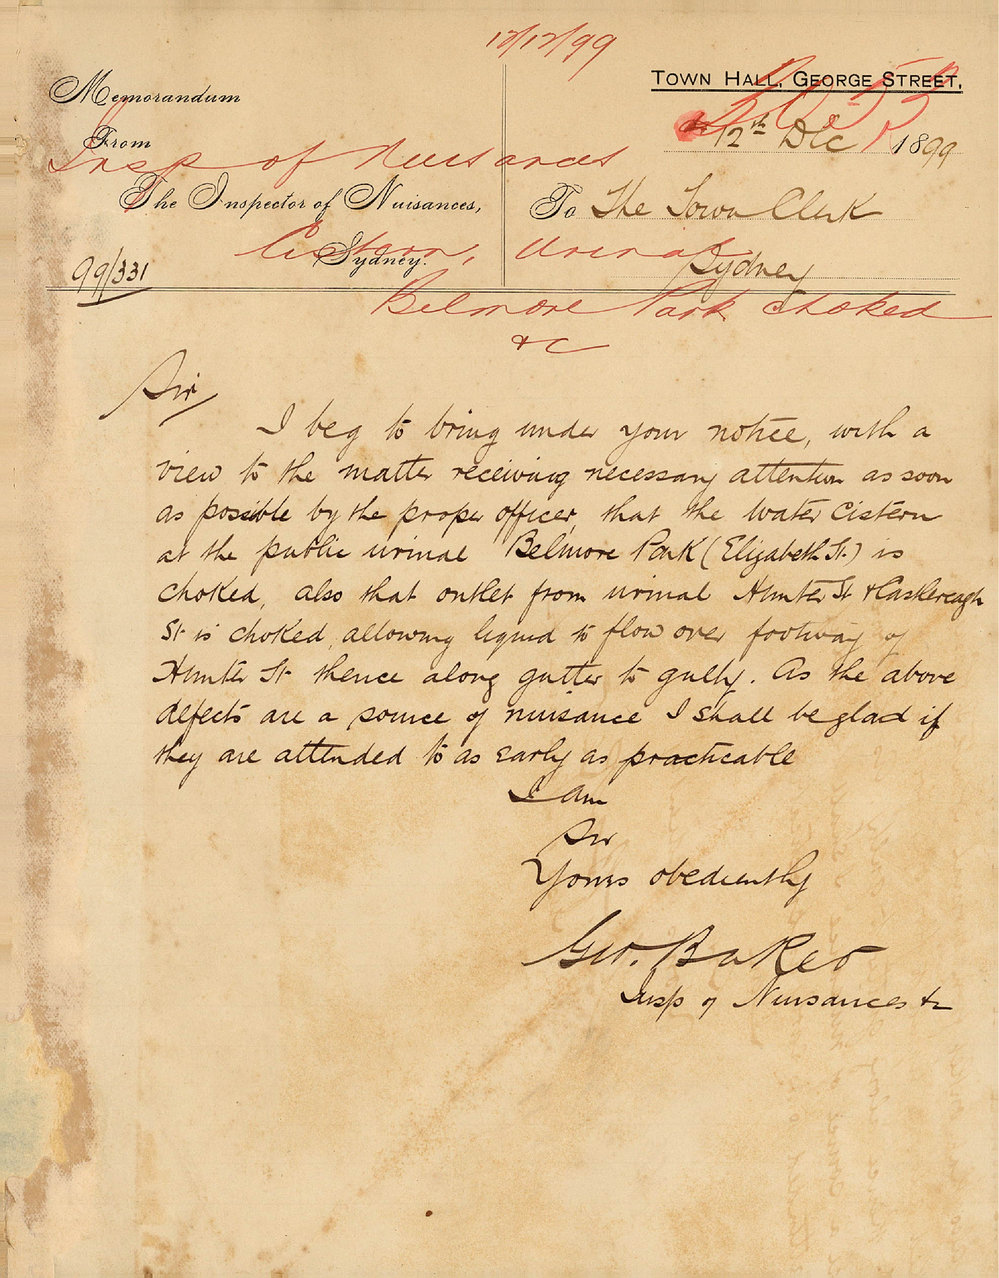 12/12/99
Memorandum
From
Insp of Nuisances
The Inspector of Nuisances,
Sydney.
99/331
TOWN HALL, GEORGE STREET,
12th Dec 1899
To The Town Clerk
Sydney
Cistern, Urinal
Belmore Park choked
&c
Sir
I beg to bring under your notice, with a
view to the matter receiving necessary attention as soon
as possible by the proper officer, that the water cistern
at the public urinal Belmore Park (Elizabeth St.) is
choked, also that outlet from urinal Hunter St & Castlereagh
St is choked, allowing liquid to flow over footway of
Hunter St thence along gutter to gully. As the above
defects are a source of nuisance I shall be glad if
they are attended to as early as practicable
I am
Sir
Yours obediently
Geo. Baker
Insp of Nuisances &c